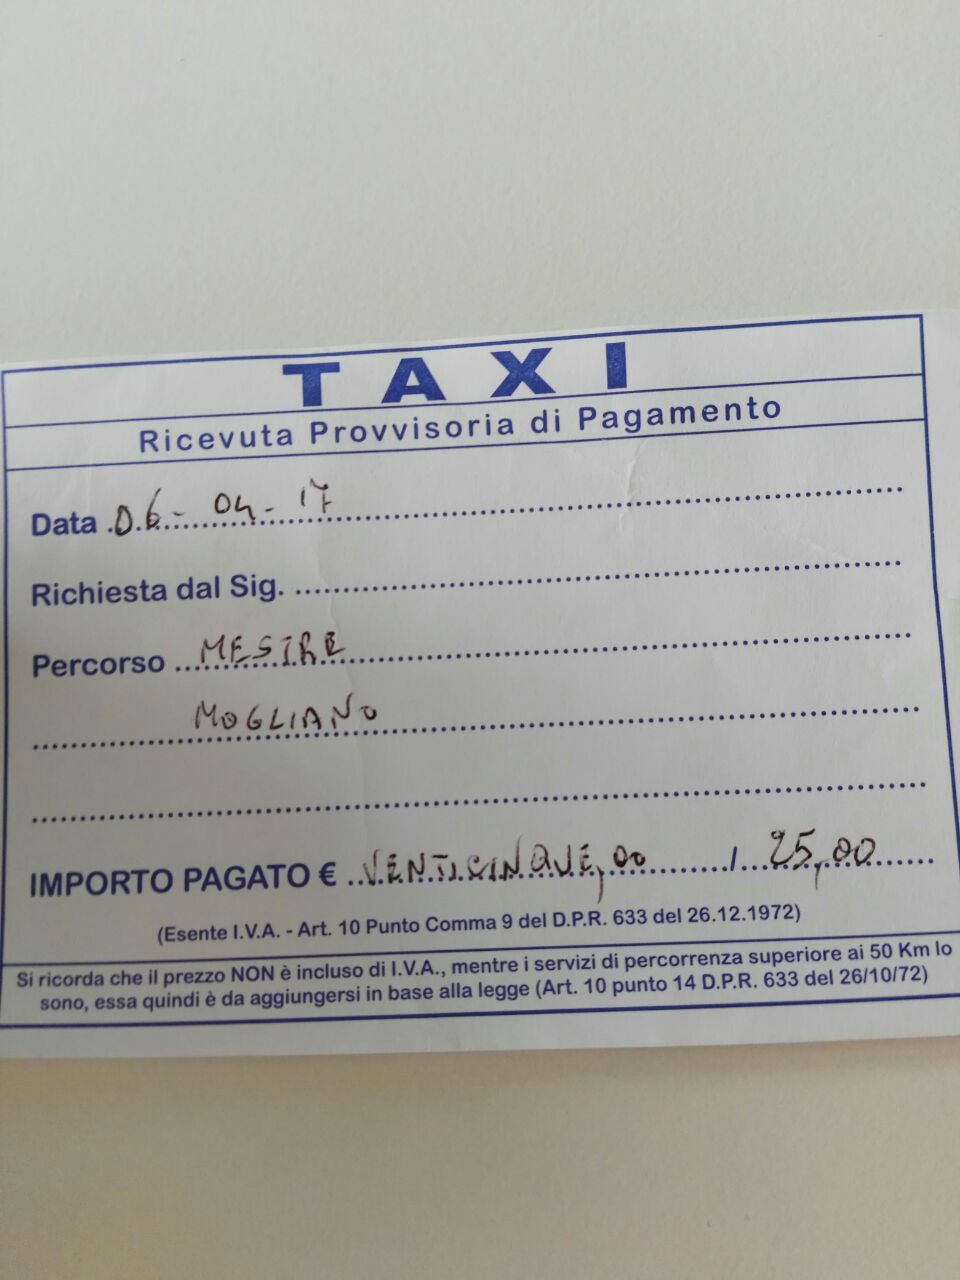 TAXI
Ricevuta Provvisoria di Pagamento
Data 06 - 04 - 17
Richiesta dal Sig.
Percorso MESTRE
MOGLIANO
IMPORTO PAGATO € VENTICINQUE,00 / 25,00
(Esente I.V.A. - Art. 10 Punto Comma 9 del D.P.R. 633 del 26.12.1972)
Si ricorda che il prezzo NON è incluso di I.V.A., mentre i servizi di percorrenza superiore ai 50 Km lo
sono, essa quindi è da aggiungersi in base alla legge (Art. 10 punto 14 D.P.R. 633 del 26/10/72)